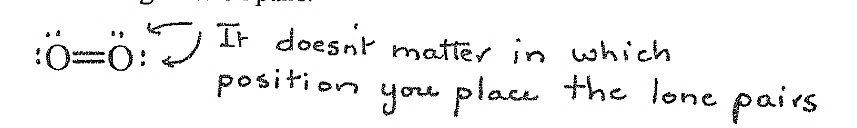 :Ö=Ö: It doesn't matter in which
position you place the lone pairs